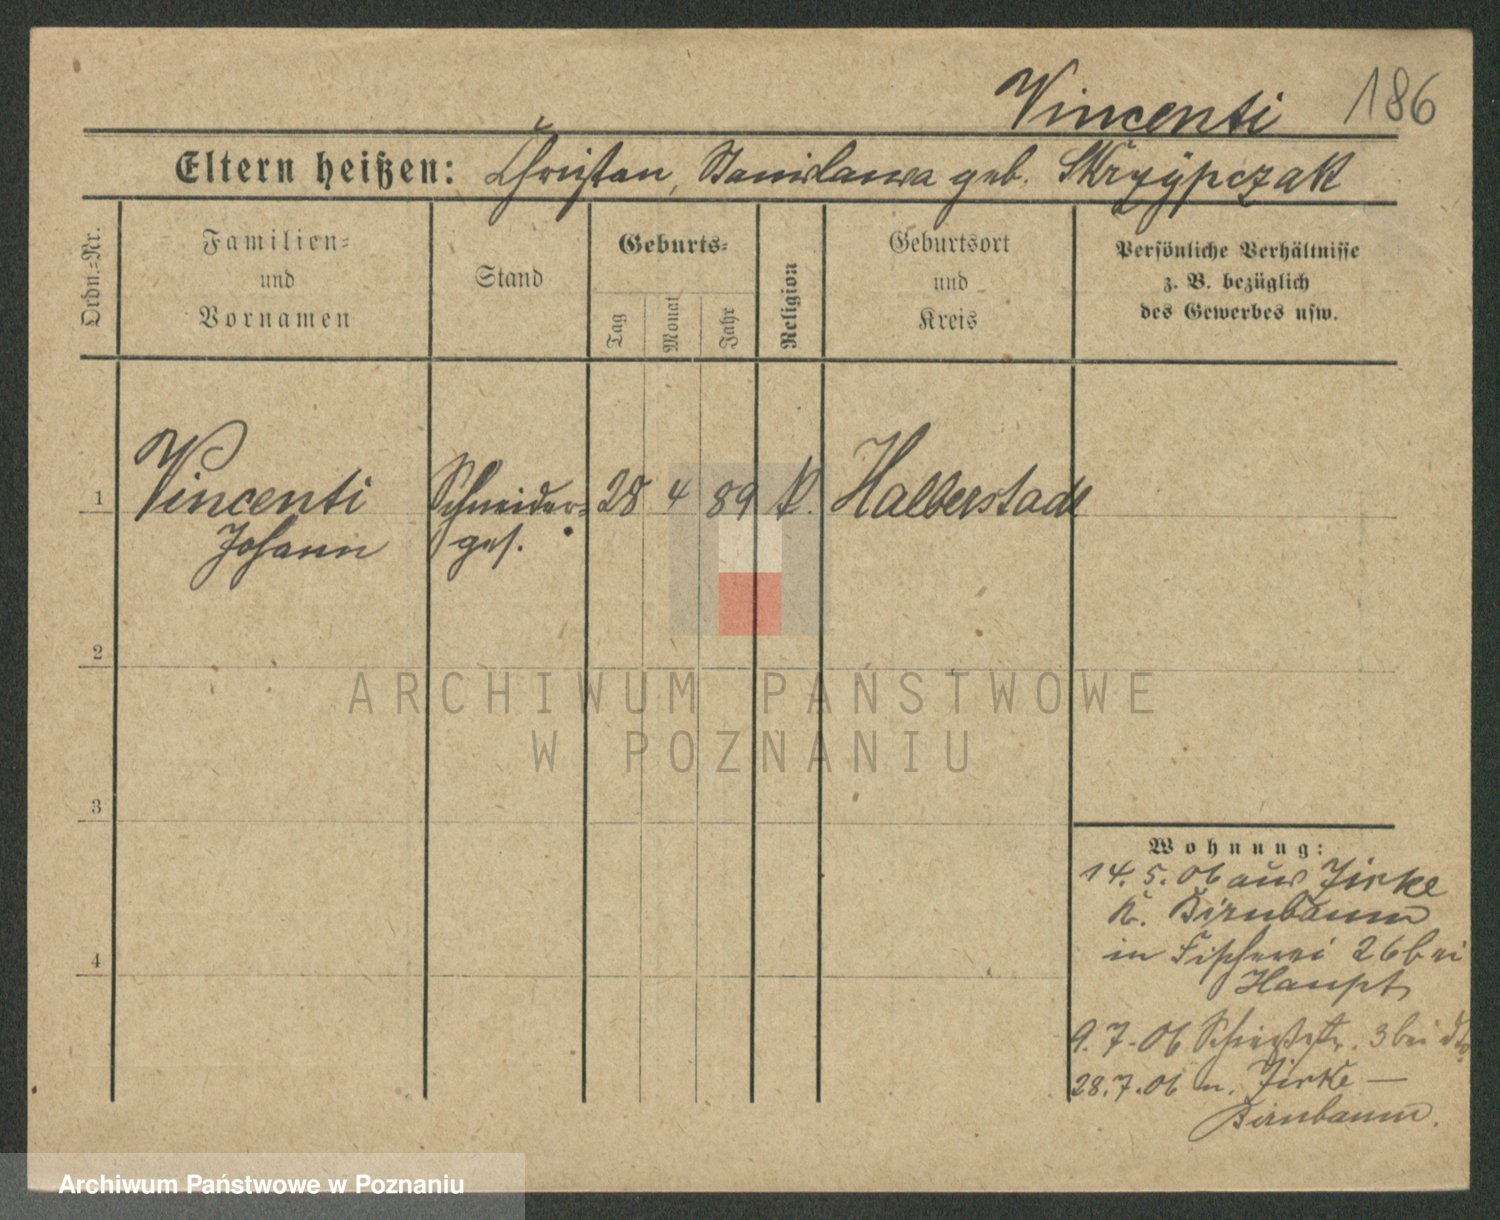 Vincenti 186
Eltern heißen: Christian, Stanislawa geb. Skrzypczak
Ordn.-Nr.
Familien-
und
Vornamen
Stand
Geburts-
Tag
Monat
Jahr
Religion
Geburtsort
und
Kreis
Persönliche Verhältnisse
z. B. bezüglich
des Gewerbes usw.
1 Vincenti Schneider- 28 4 89 k. Halberstadt
Johann ges.
2
3
4
Wohnung:
14. 5. 06 aus Zirke
K. Birnbaum
in Fischerei 26 bei
Haupt
9. 7. 06 3 bei
28. 7. 06 n. Zirke —
Birnbaum.
ARCHIWUM PAŃSTWOWE
W POZNANIU
Archiwum Państwowe w Poznaniu